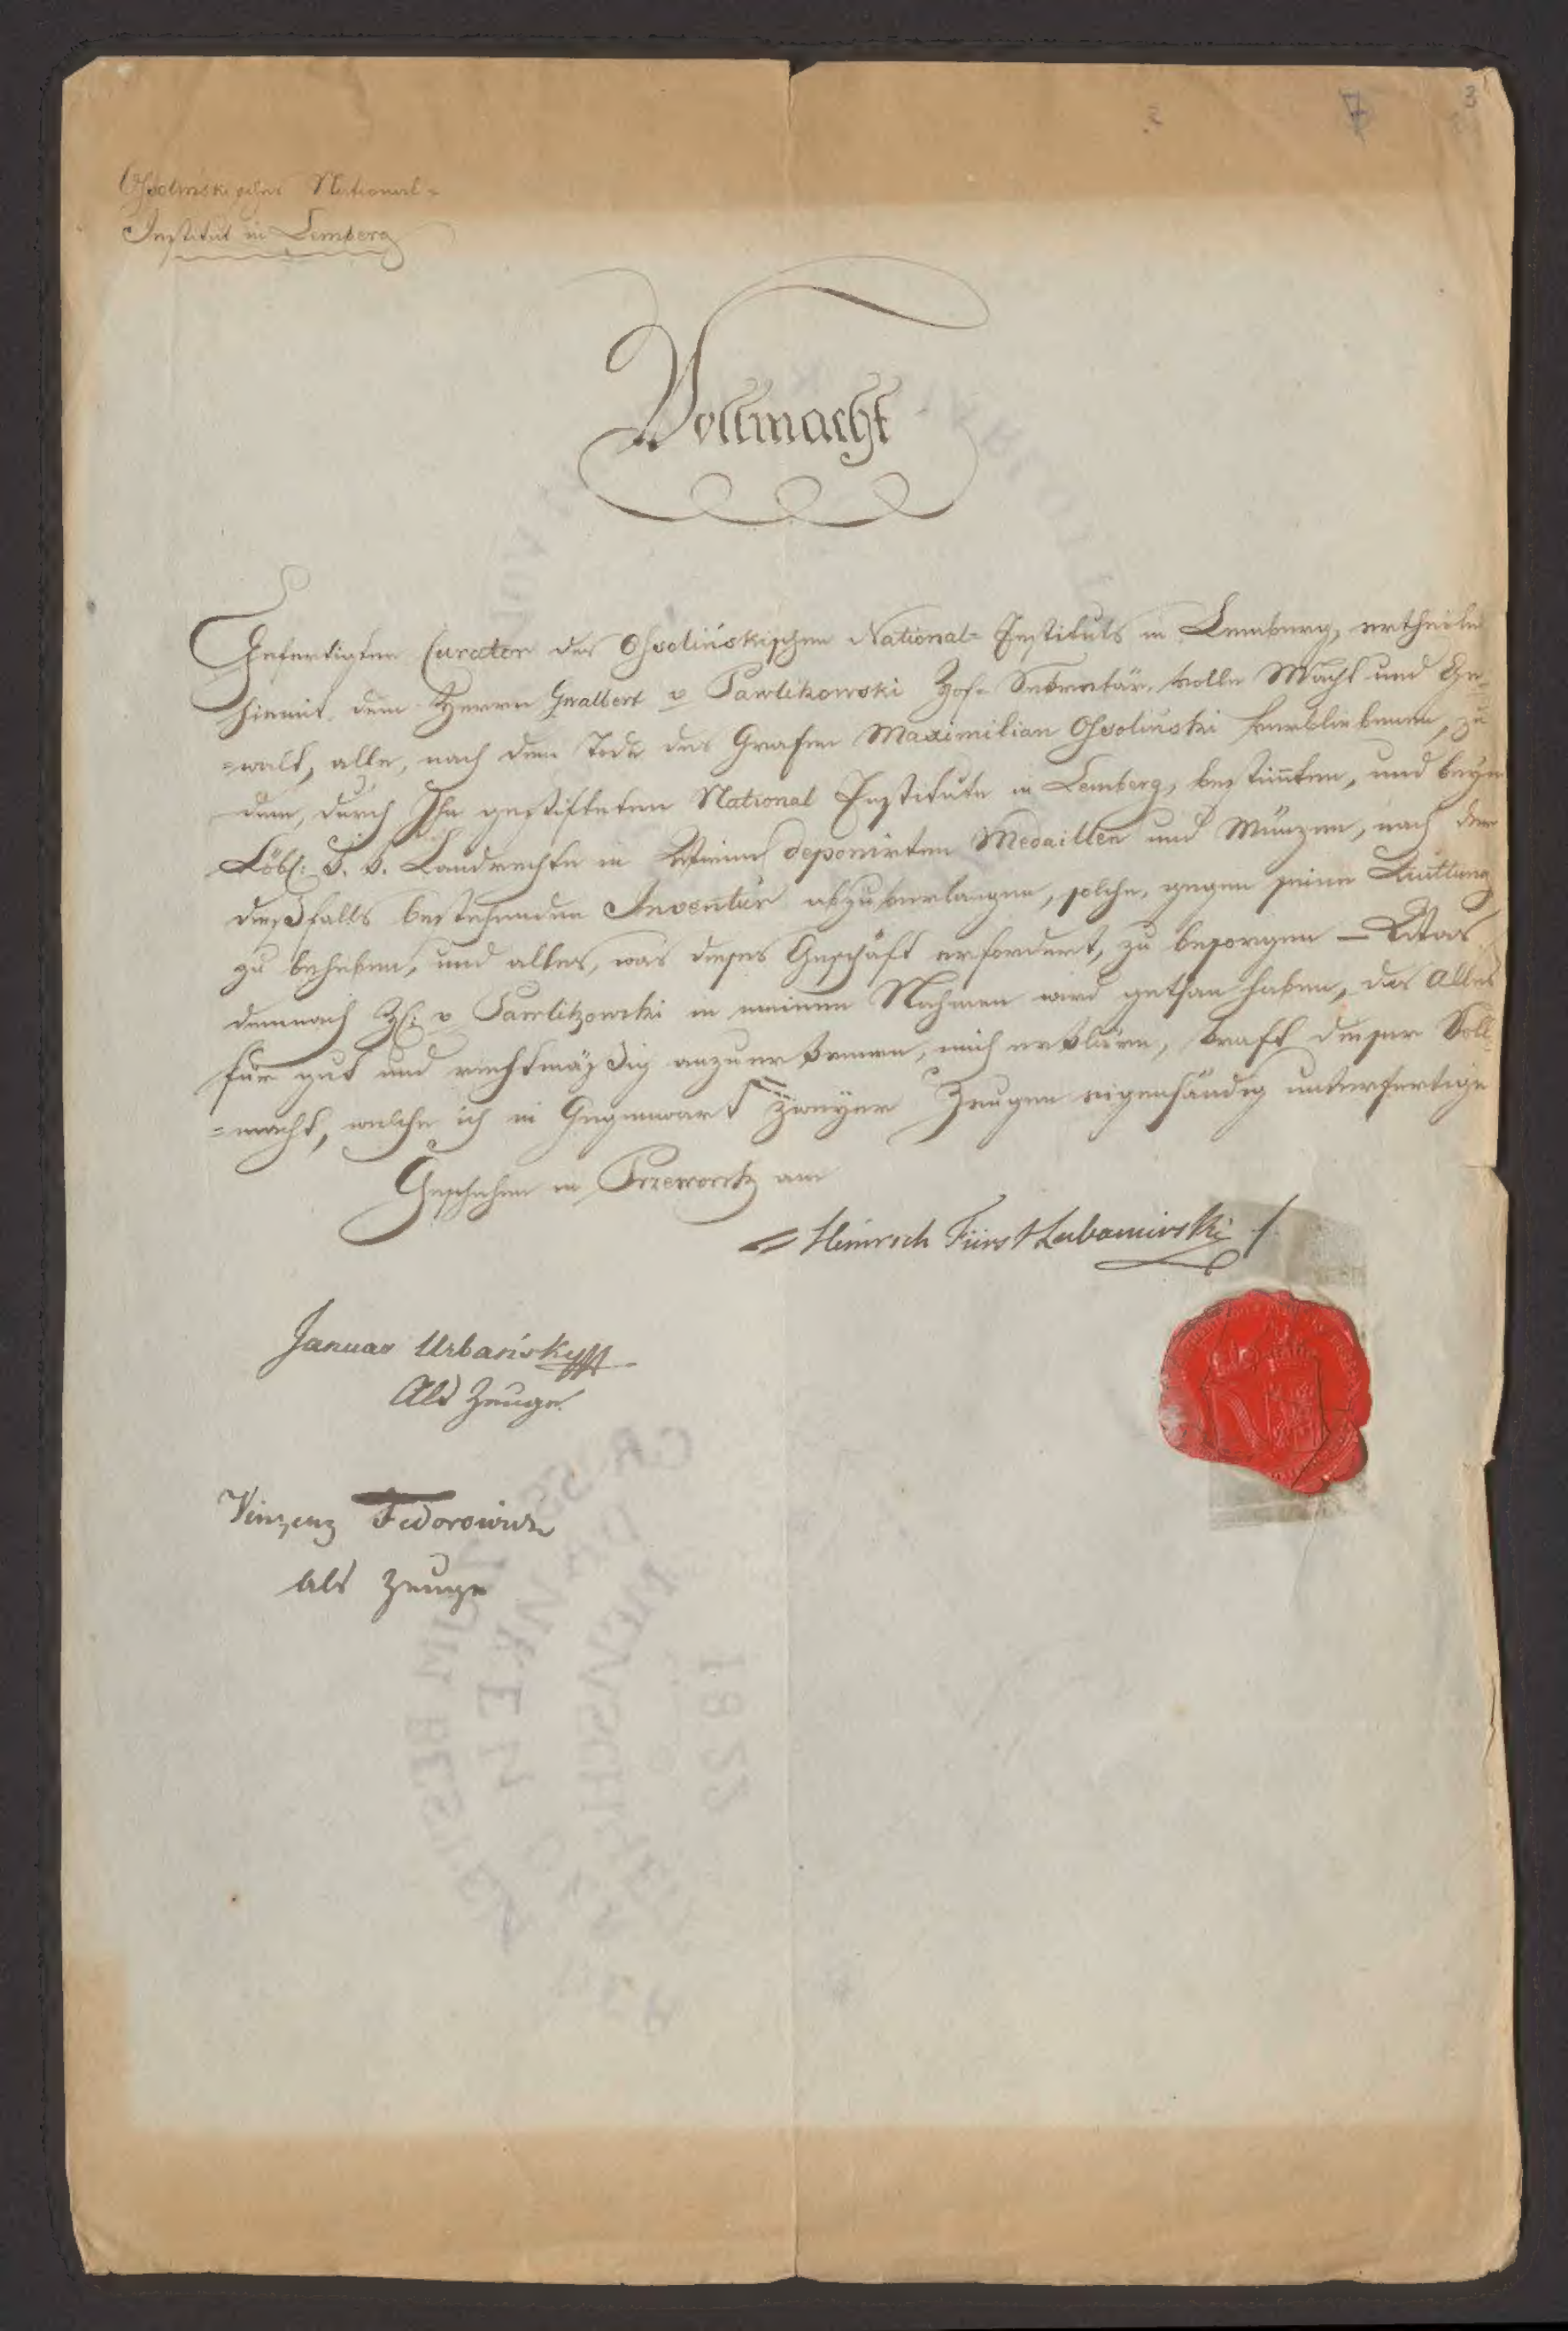 3
7
Ossolinskisches National-
Institut in Lemberg
Vollmacht
Gefertigter Curator des Ossolińskischen National- Instituts in Lemberg, ertheilet
hiemit dem Herrn Gwalbert v Pawlikowski Hof- Sekretär, volle Macht und Ge-
=walt, alle, nach dem Tode des Grafen Maximilian Ossoliński verbliebenen, zu
dem, durch Ihn gestifteten National Institute in Lemberg, bestimten, und beym
Löbl: k. k. Landrechte in Wien deponirten Medaillen und Münzen, nach dem
dießfalls bestehenden Inventar abzuverlangen, solche, gegen seine Quittung
zu beheben, und alles, was dieses Geschäft erfordert, zu besorgen — Was
demnach H: v Pawlikowski in meinem Nahmen wird gethan haben, das alles
für gut und rechtmäßig anzuerkennen, mich erkläre, kraft dieser Voll-
=macht, welche ich in Gegenwart zweyer Zeugen eigenhändig unterfertige
Geschehen in Przeworsk am
Heinrich Fürst Lubomirski
Januar Urbański
Als Zeuge.
Vinzenz Fedorowicz
als Zeuge
1822